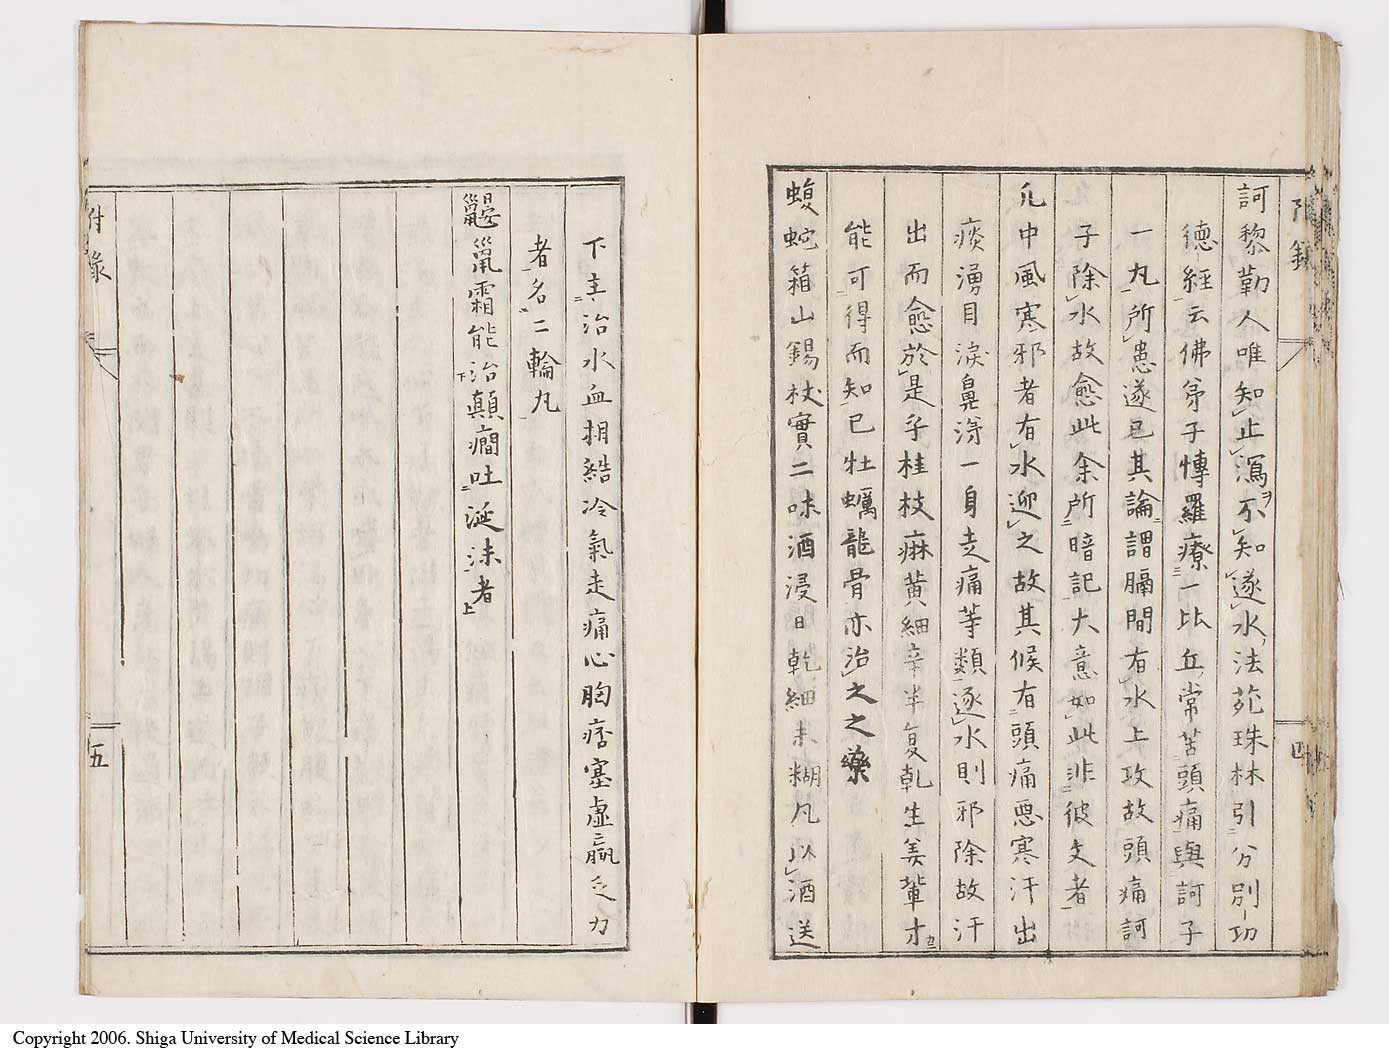 附錄
四
訶黎勒人唯知止瀉不知逐水法苑珠林引分別功
德經云佛弟子慱羅療一比丘常苦頭痛與訶子
一丸所患遂已其論謂膈間有水上攻故頭痛訶
子除水故愈此余所暗記大意如此非彼文者
凡中風寒邪者有水迎之故其候有頭痛惡寒汗出
痰湧目淚鼻涕一身走痛等類逐水則邪除故汗
出而愈於是乎桂枝麻黃細辛半夏乾生姜輩才
能可得而知已牡蠣龍骨亦治之之藥
蝮蛇箱山錫杖實二味酒浸日乾細末糊凡以酒送
下主治水血相結冷氣走痛心胸痞塞虛羸乏力
者名二輪丸
鼴巤霜能治顛癇吐涎沫者
附錄
五
Copyright 2006. Shiga University of Medical Science Library